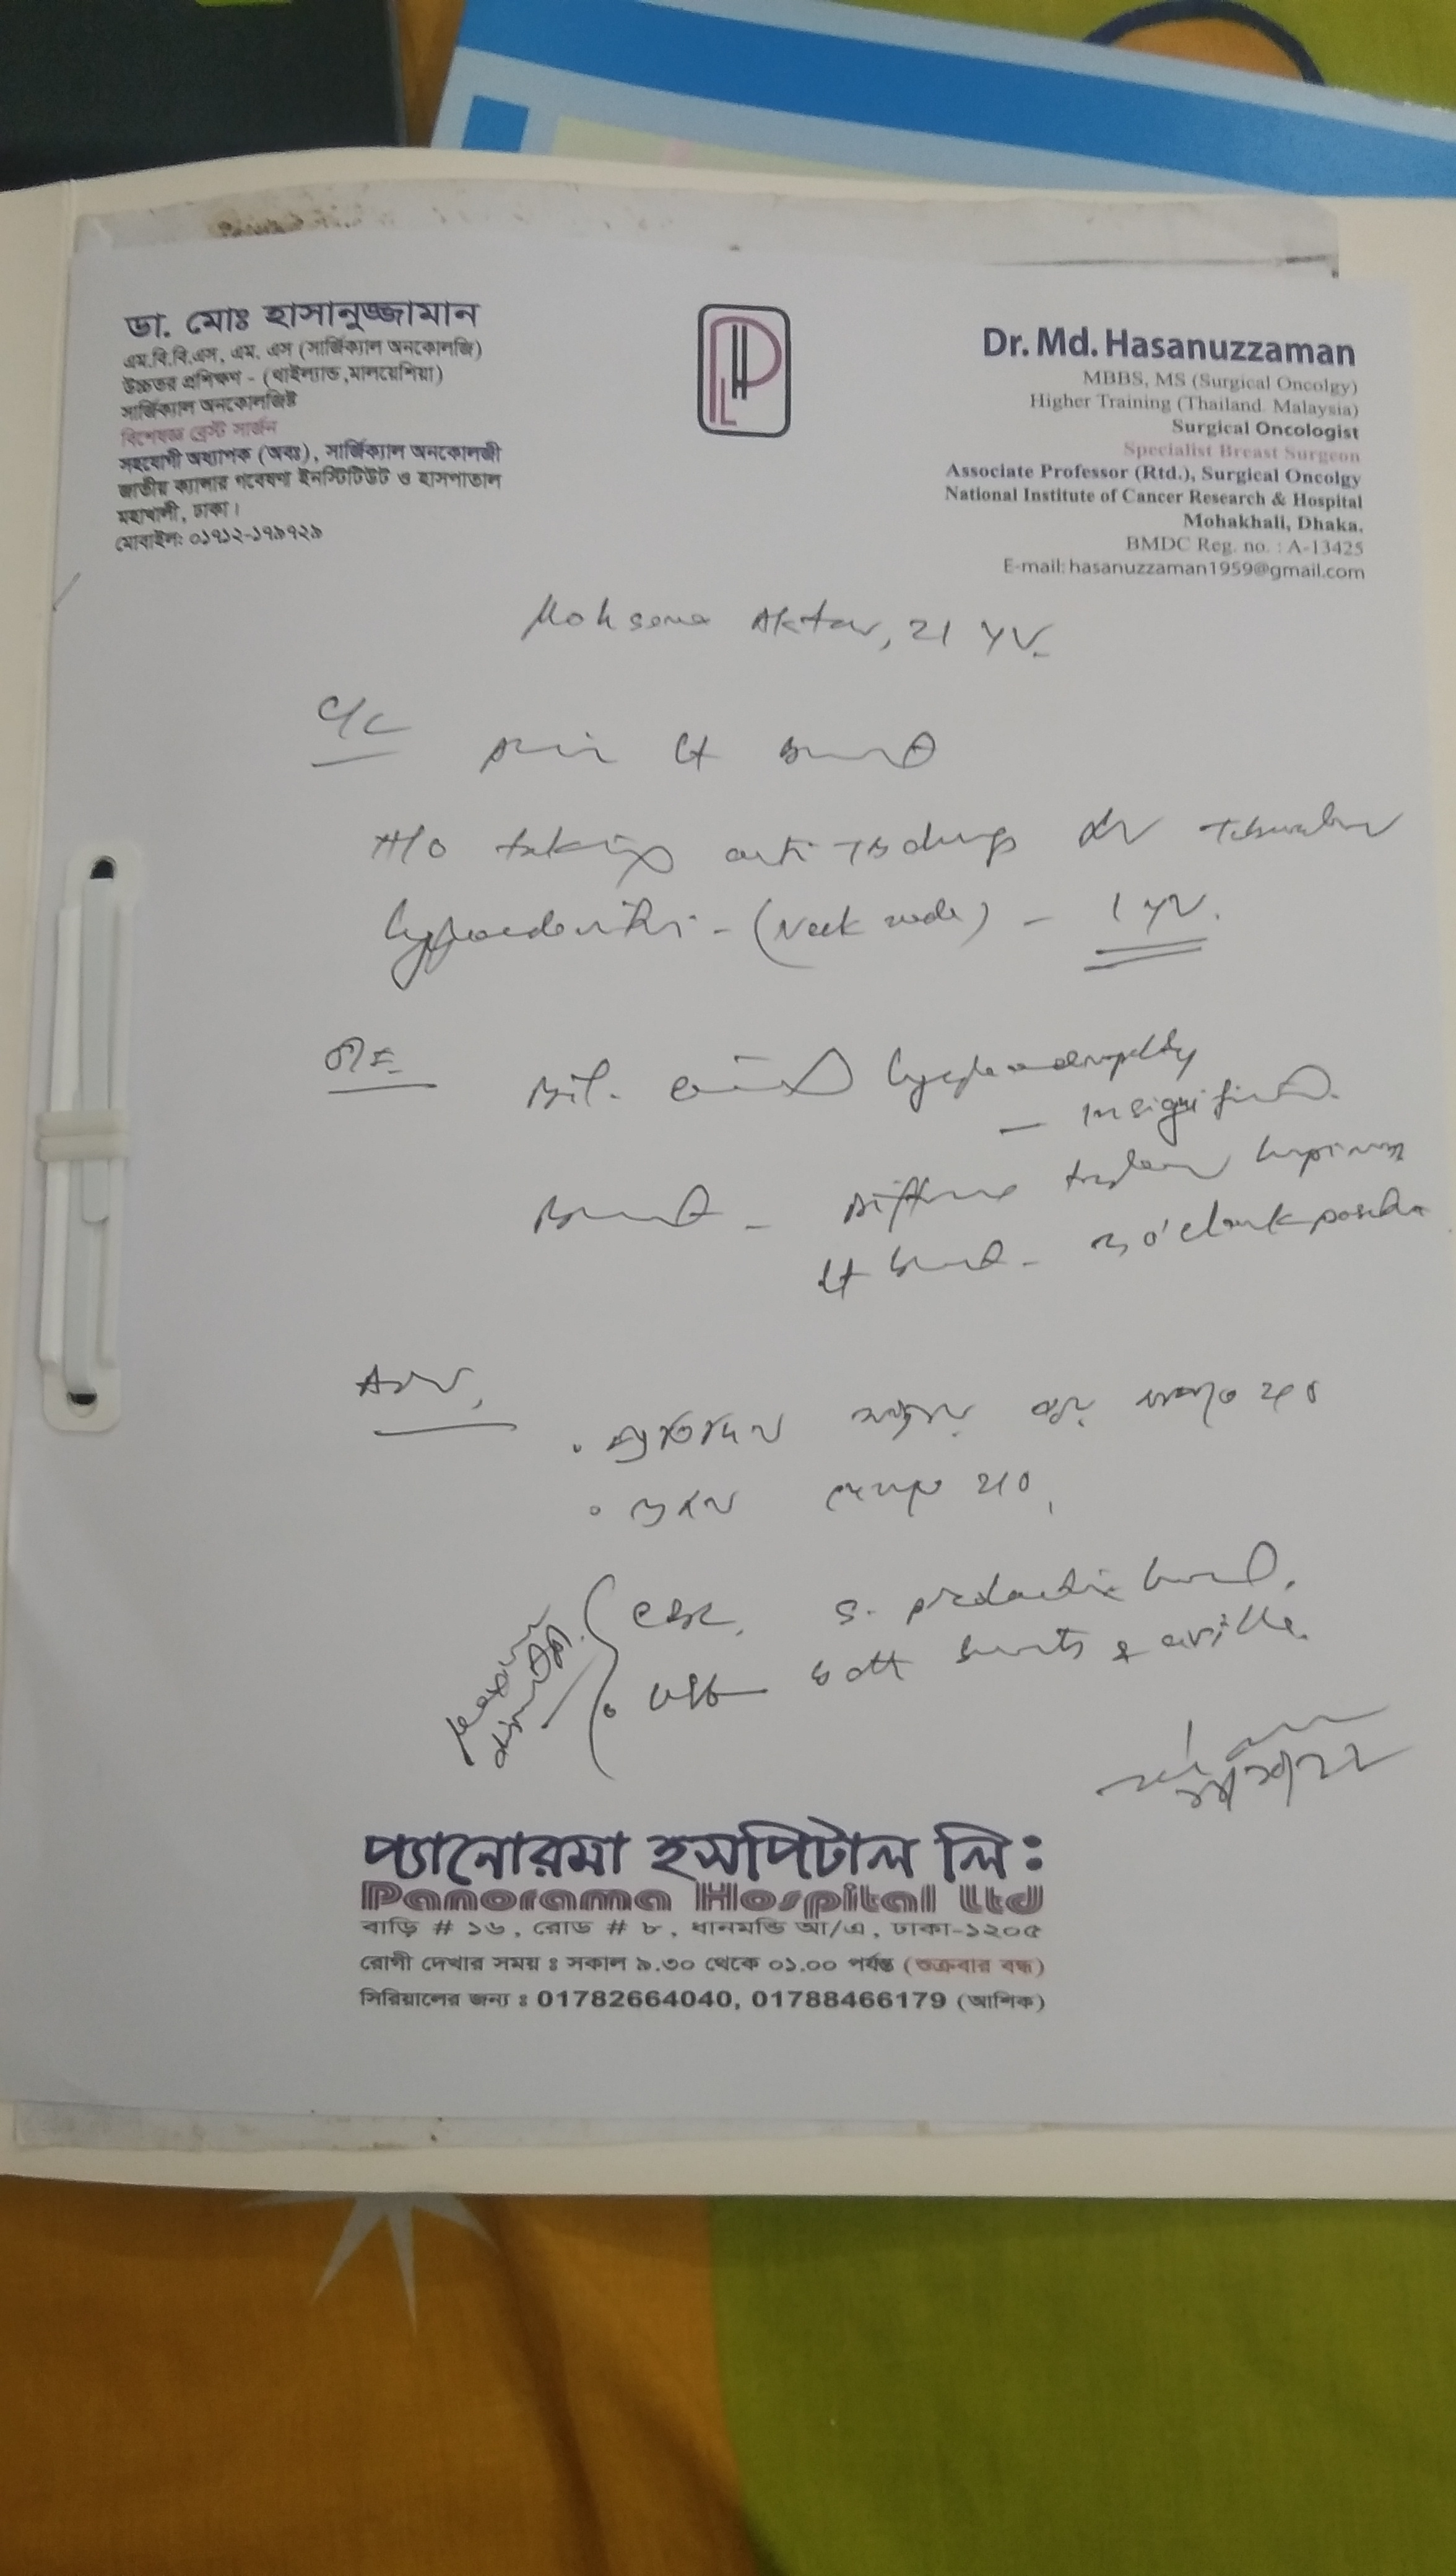 ডা. মোঃ হাসানুজ্জামান
এম.বি.বি.এস, এম. এস (সার্জিক্যাল অনকোলজি)
উচ্চতর প্রশিক্ষণ - (থাইল্যান্ড ,মালয়েশিয়া)
সার্জিক্যাল অনকোলজিষ্ট
বিশেষজ্ঞ ব্রেস্ট সার্জন
সহযোগী অধ্যাপক (অবঃ), সার্জিক্যাল অনকোলজী
জাতীয় ক্যান্সার গবেষণা ইনস্টিটিউট ও হাসপাতাল
মহাখালী, ঢাকা।
মোবাইল: ০১৭১২-১৭৯৭২৯
Dr. Md. Hasanuzzaman
MBBS, MS (Surgical Oncolgy)
Higher Training (Thailand. Malaysia)
Surgical Oncologist
Specialist Breast Surgeon
Associate Professor (Rtd.), Surgical Oncolgy
National Institute of Cancer Research & Hospital
Mohakhali, Dhaka.
BMDC Reg. no. : A-13425
E-mail: hasanuzzaman1959@gmail.com
Aktar, 21 yr.
C/C pain Lt breast
H/O taking anti TB drugs for
(Neck node) - 1 yr.
O/E Bil. lymphadenopathy
- Insignificant.
Breast - Diffuse
Lt breast - 3 o'clock position
Adv.
প্রতিদিন
CBC, S. prolactin level.
both breasts & axilla.
প্যানোরমা হসপিটাল লি:
Panorama Hospital Ltd
বাড়ি # ১৬, রোড # ৮, ধানমন্ডি আ/এ, ঢাকা-১২০৫
রোগী দেখার সময় : সকাল ৯.৩০ থেকে ০১.০০ পর্যন্ত (শুক্রবার বন্ধ)
সিরিয়ালের জন্য : 01782664040, 01788466179 (আশিক)